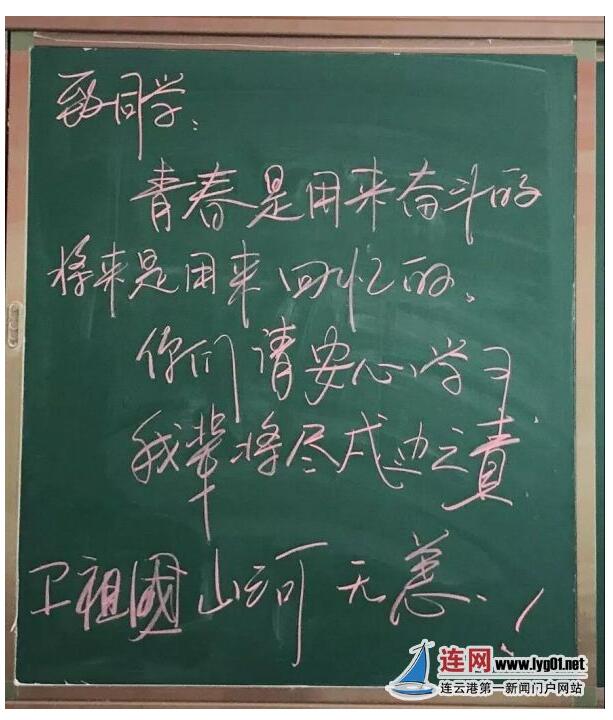 致同学：
青春是用来奋斗的
将来是用来回忆的、
你们请安心学习
我辈将尽戍边之責
卫祖國山河无恙、！
连网 www.lyg01.net
连云港第一新闻门户网站